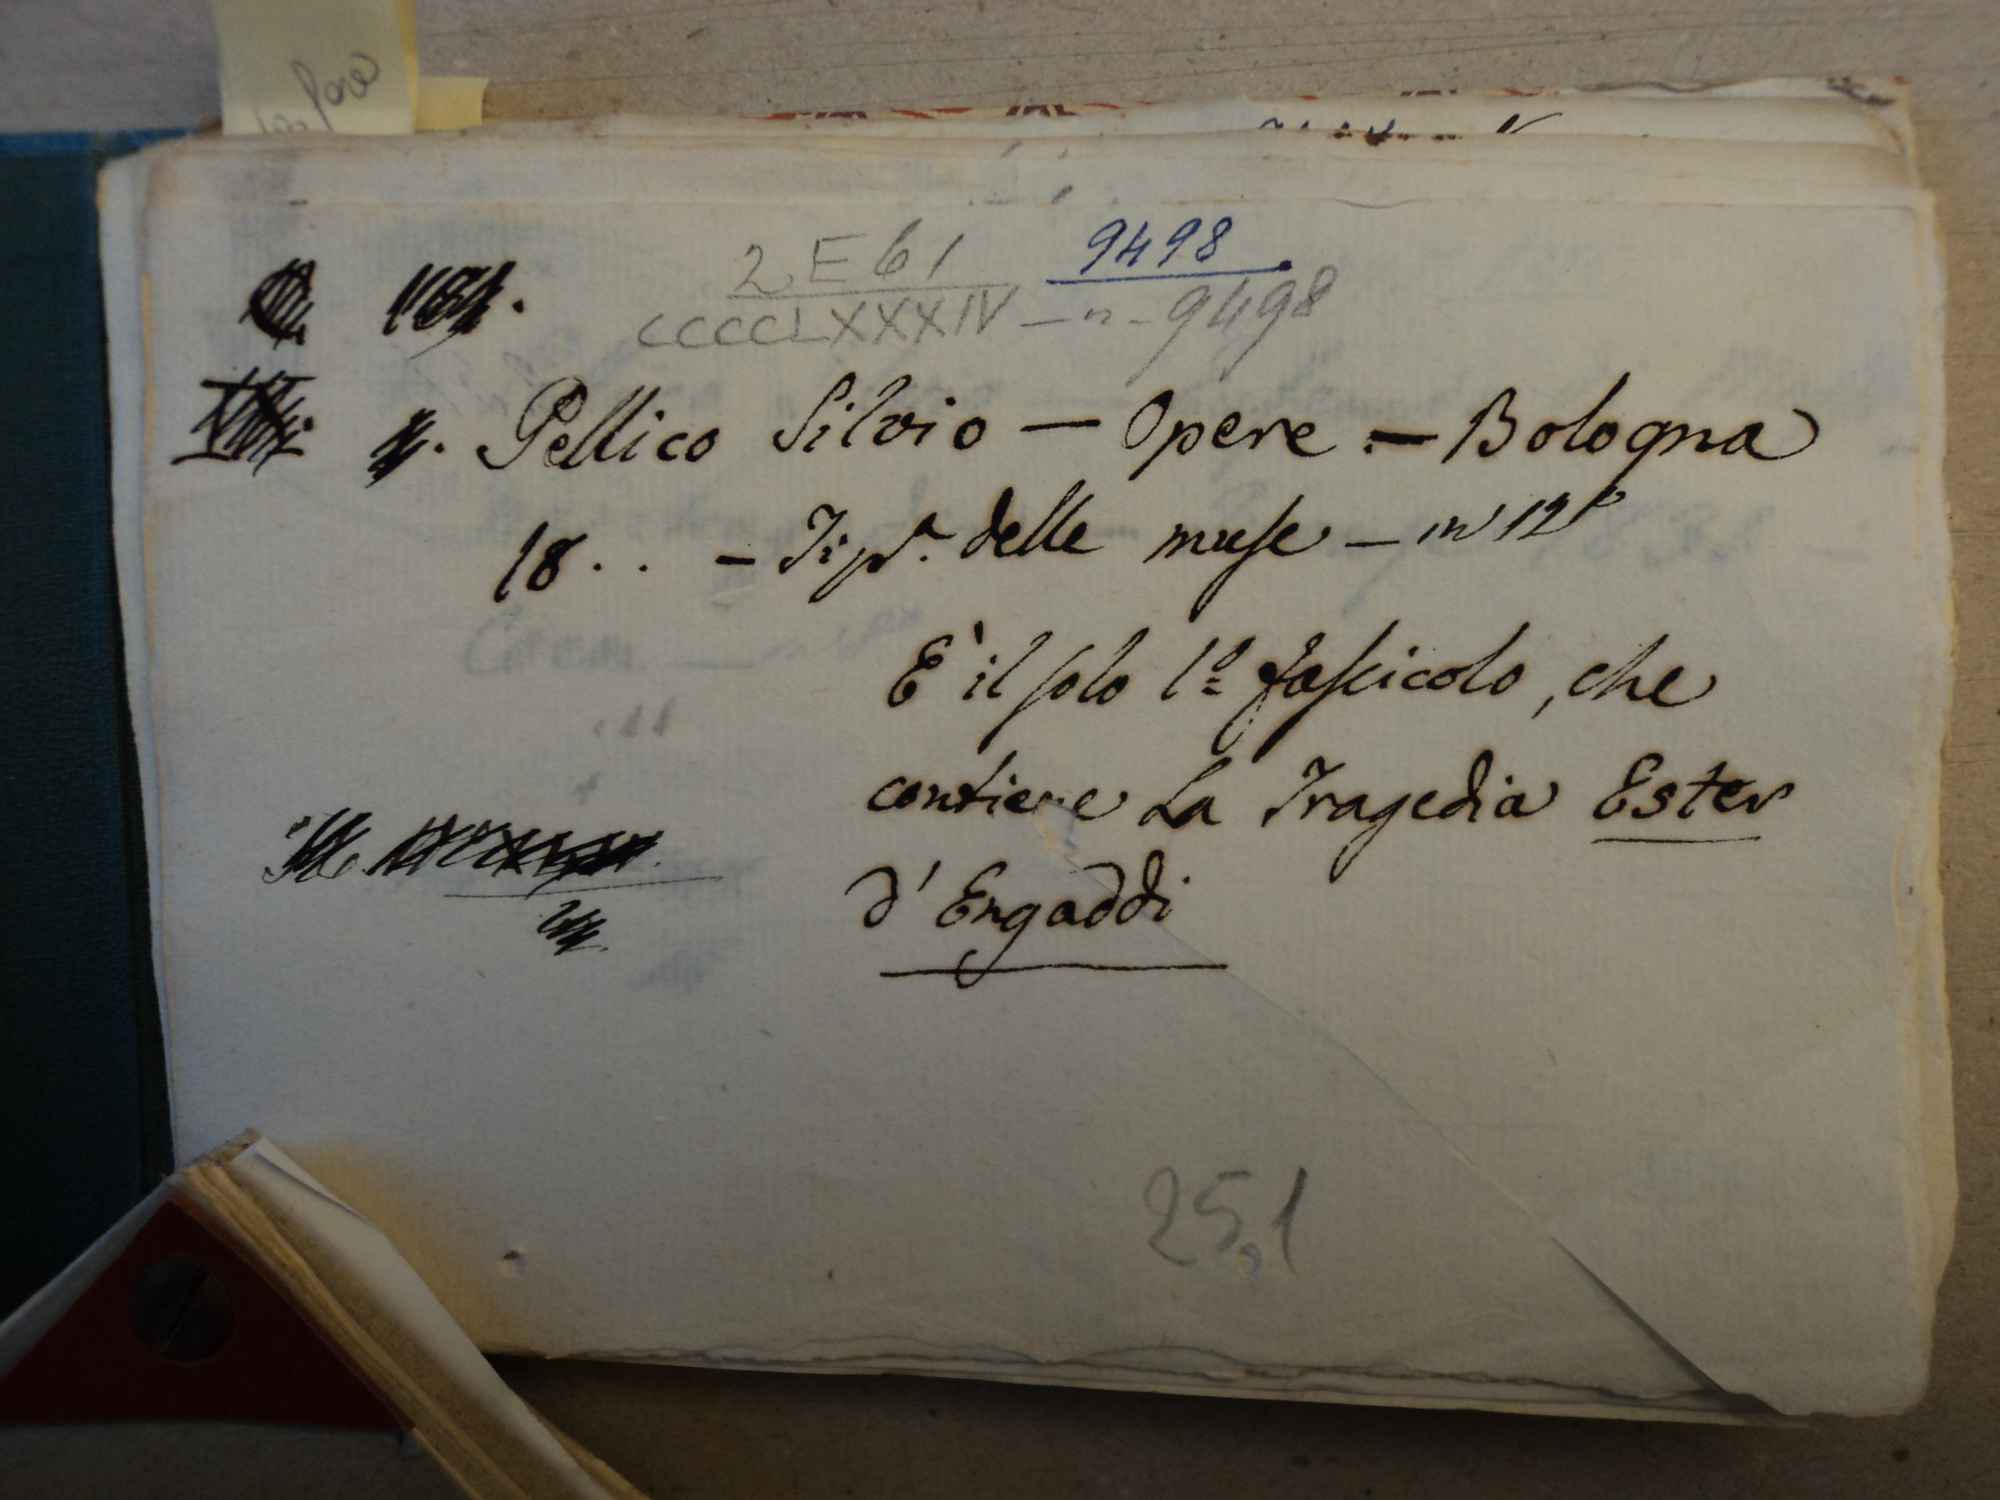 2 E 61 9498
CCCCLXXXIV – n – 9498
Pellico Silvio — Opere — Bologna
18 . . — Tipa. delle muse — in 12°
E' il solo 1º fascicolo, che
contiene La Tragedia Ester
d'Engaddi
25,1